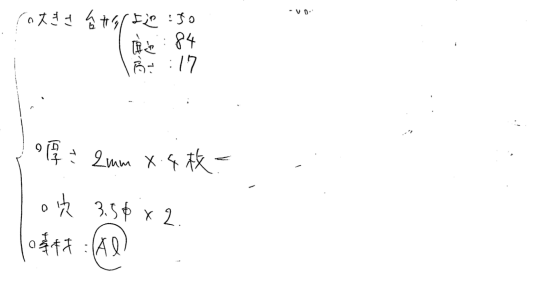 ○大きさ 台形 上辺:50
底辺:84
高さ:17
○厚さ 2mm × 4枚
○穴 3.5φ × 2
○素材:Al